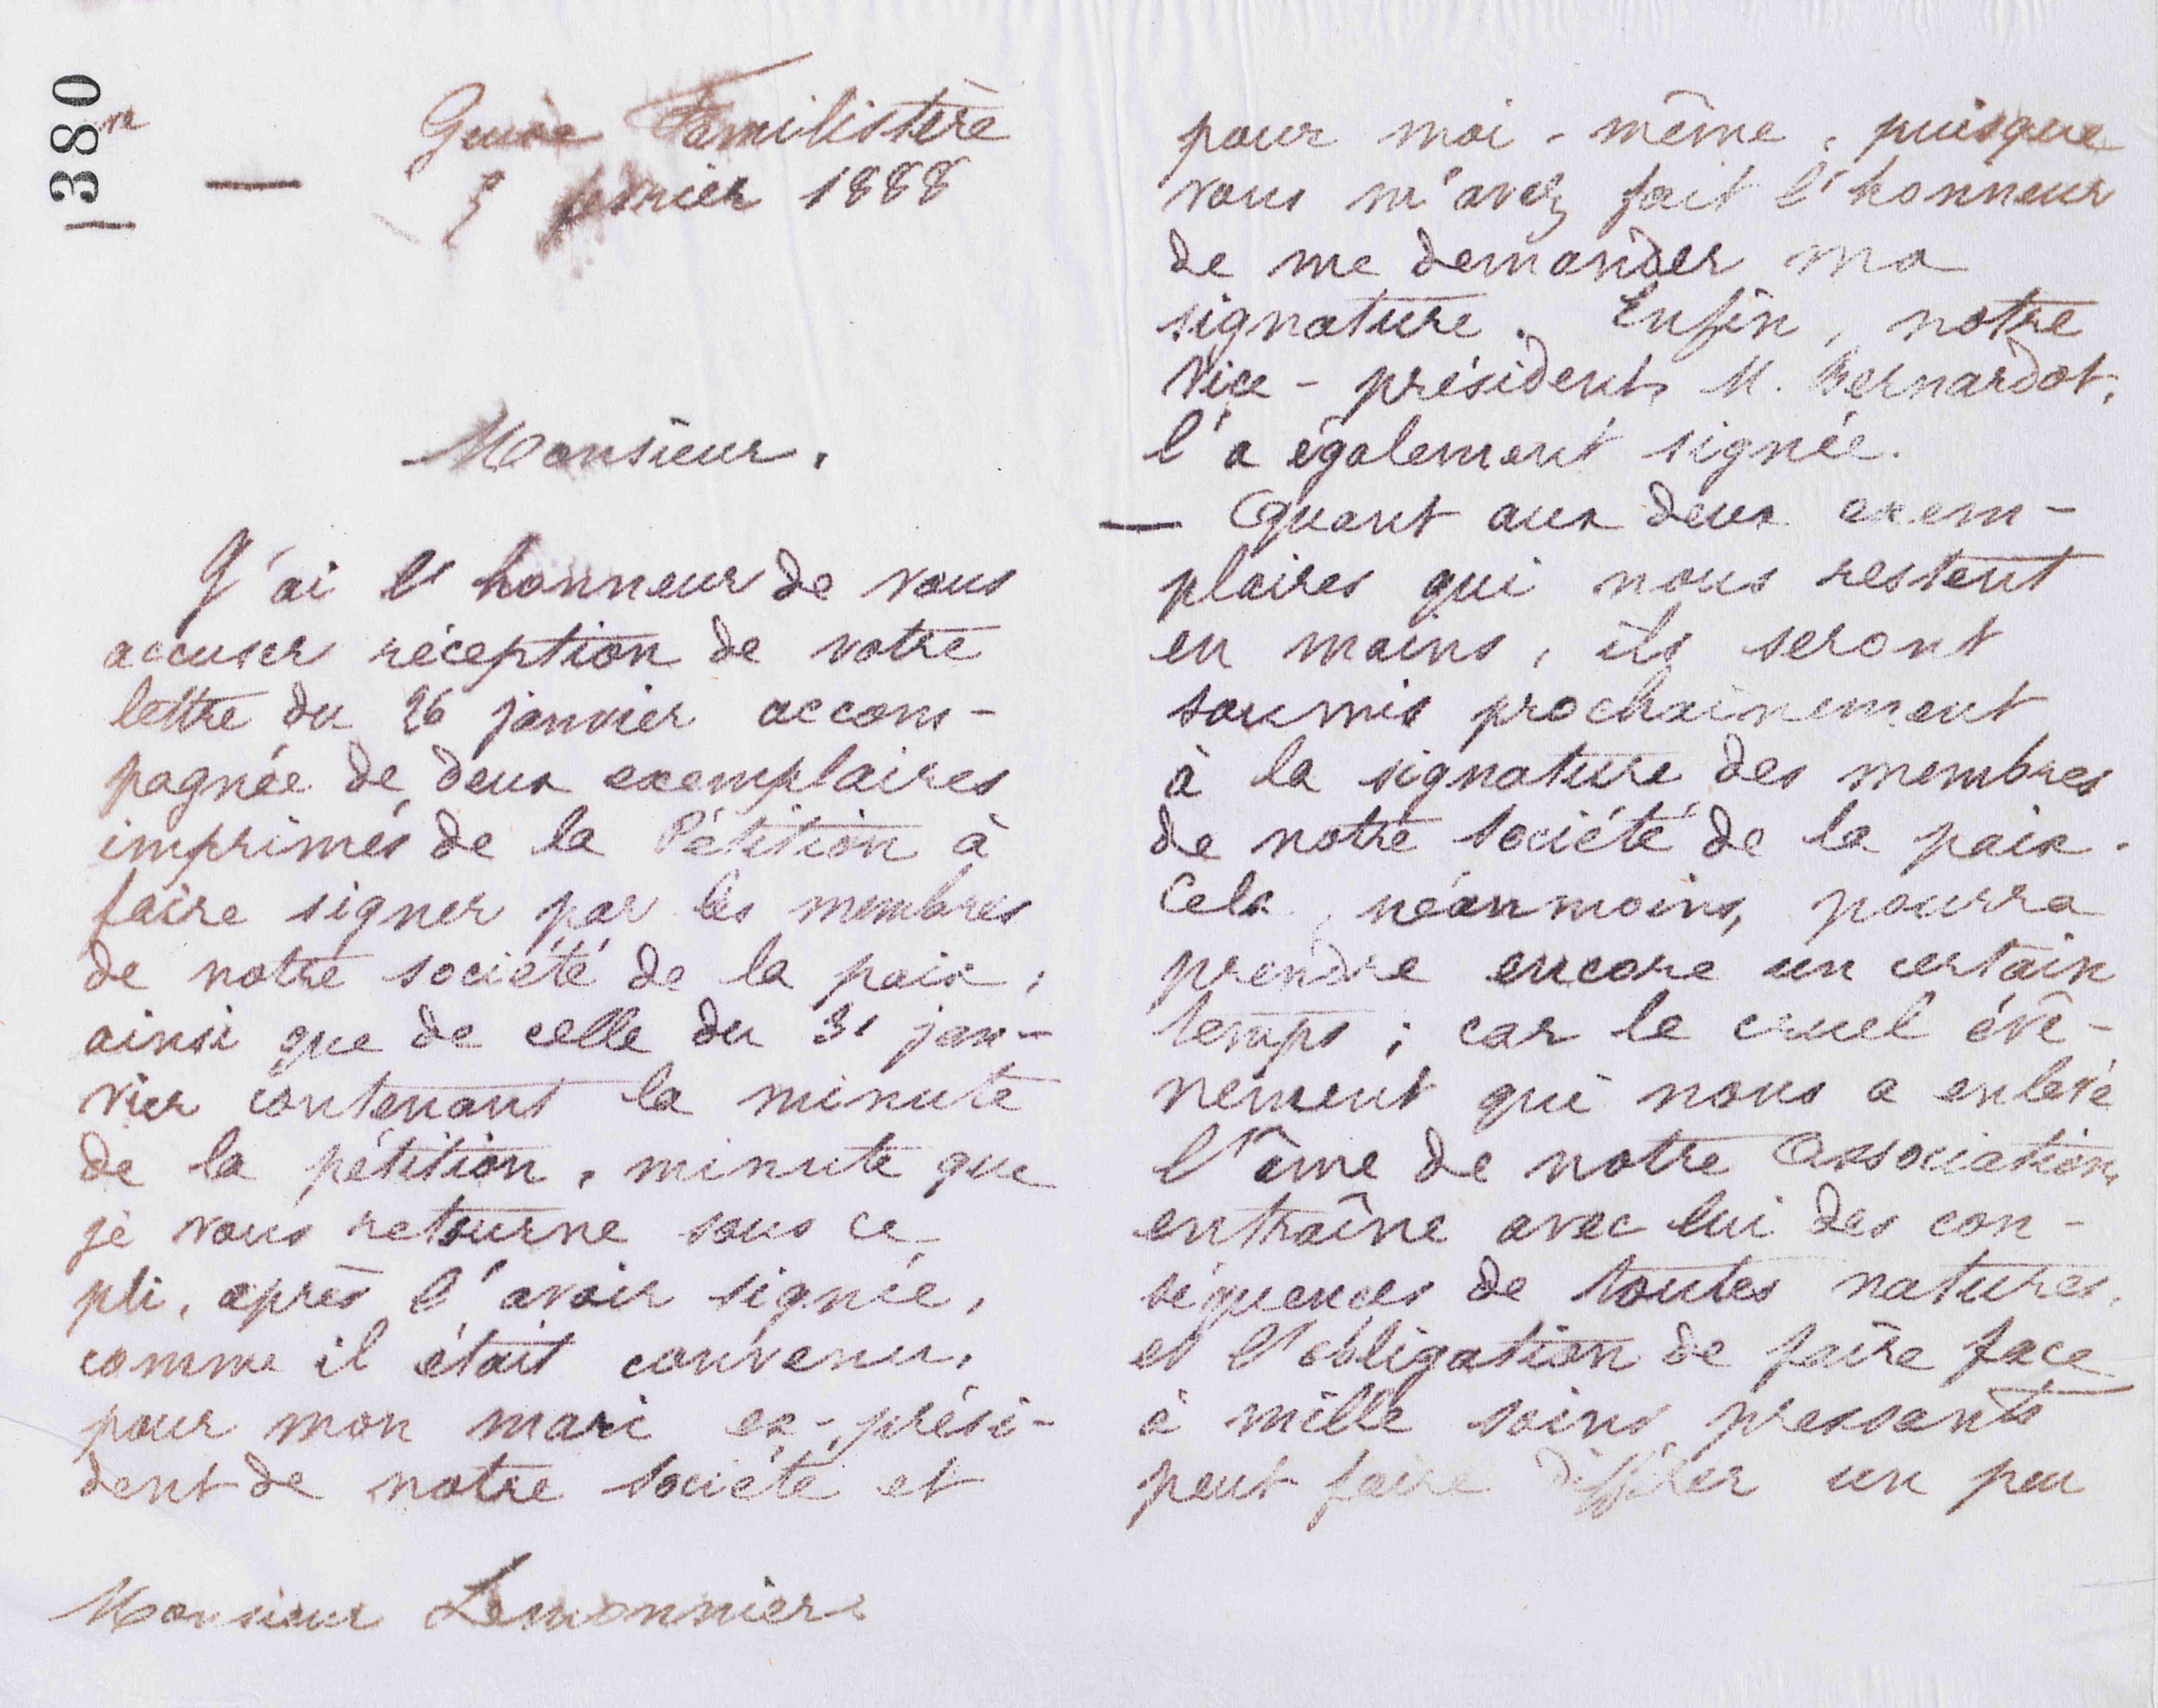 380
Guise Familistère
février 1888
Monsieur,
J'ai l'honneur de vous
accuser réception de votre
lettre du 26 janvier accom-
pagnée de deux exemplaires
imprimés de la Pétition à
faire signer par les membres
de notre société de la paix,
ainsi que de celle du 31 jan-
vier contenant la minute
de la pétition, minute que
je vous retourne sous ce
pli, après l'avoir signée,
comme il était convenu,
pour mon mari ex-prési-
dent de notre Société et
Monsieur Lemonnier.
pour moi-même, puisque
vous m'avez fait l'honneur
de me demander ma
signature. Enfin, notre
Vice-président, M. Bernardot,
l'a également signée.
— Quant aux deux exem-
plaires qui nous restent
en mains, ils seront
soumis prochainement
à la signature des membres
de notre Société de la paix.
Cela, néanmoins, pourra
prendre encore un certain
temps ; car le cruel évé-
nement qui nous a enlevé
l'âme de notre Association,
entraîne avec lui des con-
séquences de toutes natures,
et l'obligation de faire face
à mille soins pressants
peut faire différer un peu